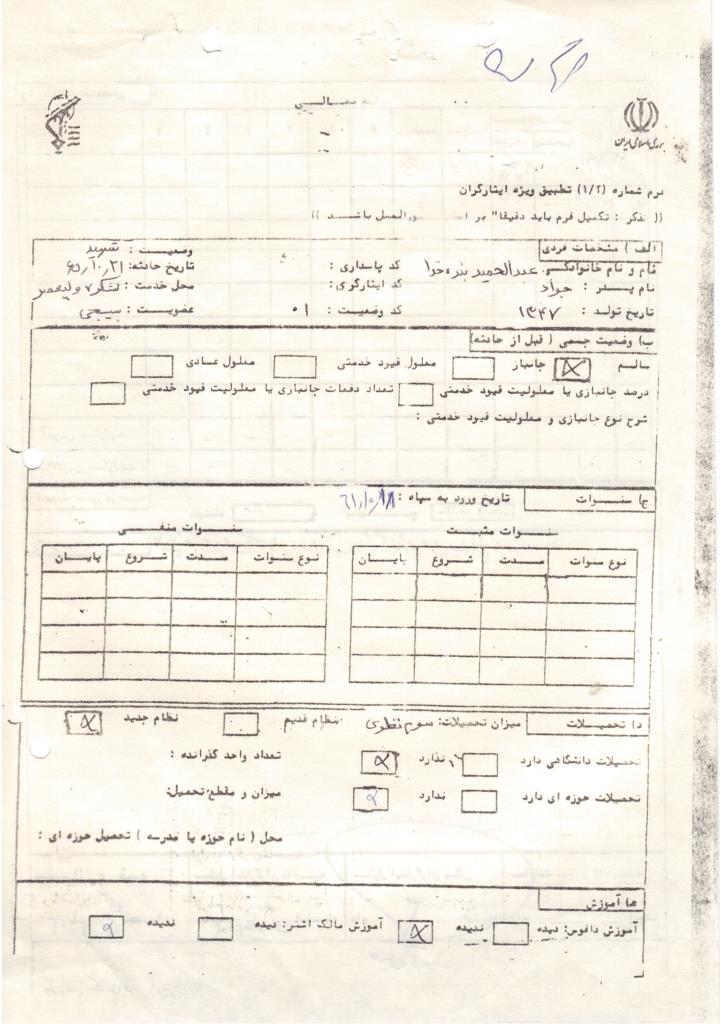 فرم شماره (۱/۲) تطبیق ویژه ایثارگران
(( تذکر : تکمیل فرم باید دقیقا" بر العمل باشد ))
الف ) مشخصات فردی
نام و نام خانوادگی: عبدالحمید کد پاسداری : وضعیت : شهید
نام پدر : جواد کد ایثارگری : تاریخ حادثه: ۶۵/۱۰/۲۱
تاریخ تولد : ۱۳۴۷ کد وضعیت : ۰۱ محل خدمت : لشکر ۷ ولیعصر
عضویت : بسیجی
ب) وضعیت جسمی ( قبل از حادثه)
سالم x جانباز معلول قیود خدمتی معلول عادی
درصد جانبازی یا معلولیت قیود خدمتی تعداد دفعات جانبازی یا معلولیت قیود خدمتی
شرح نوع جانبازی و معلولیت قیود خدمتی :
ج) سنوات تاریخ ورود به سپاه :
سنوات مثبت سنوات منفی
نوع سنوات مدت شروع پایان نوع سنوات مدت شروع پایان
د) تحصیلات میزان تحصیلات: سوم نظری نظام قدیم نظام جدید x
تحصیلات دانشگاهی دارد ندارد x تعداد واحد گذرانده :
تحصیلات حوزه ای دارد ندارد x میزان و مقطع تحصیل:
محل ( نام حوزه یا مدرسه ) تحصیل حوزه ای :
ه) آموزش
آموزش دافوس: دیده ندیده x آموزش مالک اشتر: دیده ندیده x